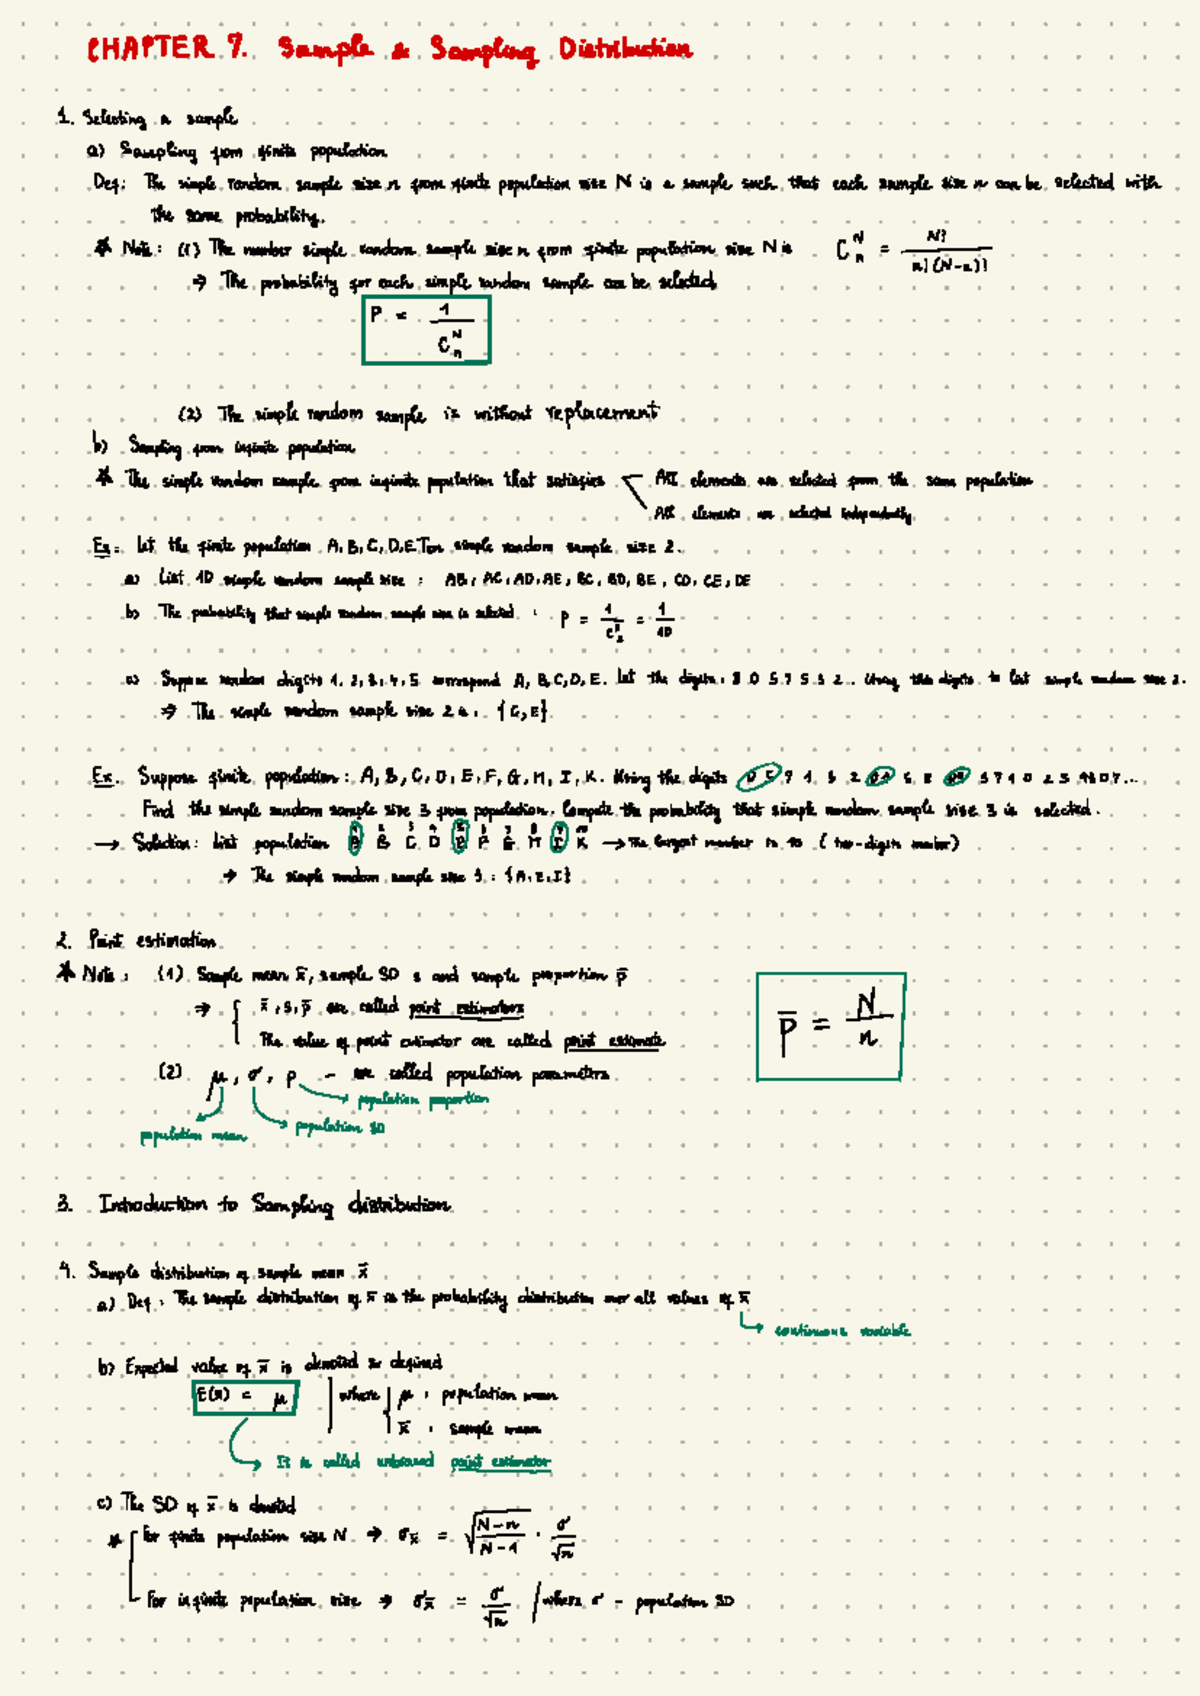 CHAPTER 7. Sample & Sampling Distribution
1. Selecting a sample
a) Sampling from finite population
Def: The simple random sample size n from finite population size N is a sample such that each sample size n can be selected with
the same probability.
* Note: (1) The number simple random sample size n from finite population size N is C^N_n = N! / n!(N-n)!
⇒ The probability for each simple random sample can be selected
P = 1 / C^N_n
(2) The simple random sample is without replacement
b) Sampling from infinite population
* The simple random sample from infinite population that satisfies
All elements are selected from the same population
All elements are selected independently
Ex: Let the finite population A, B, C, D, E. simple random sample size 2.
a) List 10 simple random sample size : AB, AC, AD, AE, BC, BD, BE, CD, CE, DE
b) The probability that simple random sample size is selected : P = 1 / C = 1/10
c) Suppose random digits 1, 2, 3, 4, 5 correspond A, B, C, D, E. Let the digits: 8 0 5 7 5 3 2. Using this digits to list simple random size 2.
⇒ The simple random sample size 2 is: {C, E}
Ex. Suppose finite population: A, B, C, D, E, F, G, H, I, K. Using the digits
Find the simple random sample size 3 from population. Compute the probability that simple random sample size 3 is selected.
→ Solution: list population A B C D E F G H I K → The largest number is 10 (two-digits number)
⇒ The simple random sample size 3 : {A, E, I}
2. Point estimation
* Note: (1) Sample mean x̄, sample SD s and sample proportion p̄
⇒ { x̄, s, p̄ are called point estimators
The value of point estimator are called point estimate
p̄ = N / n
(2) μ, σ, p - are called population parameters
population proportion
population SD
population mean
3. Introduction to Sampling distribution
4. Sample distribution of sample mean x̄
a) Def: The sample distribution of x̄ is the probability distribution over all values of x̄
continuous variable
b) Expected value of x̄ is denoted & defined
E(x̄) = μ | where { μ : population mean
x̄ : sample mean
It is called unbiased point estimator
c) The SD of x̄ is denoted
* For finite population size N ⇒ σx̄ = √(N-n / N-1) · σ/√n
For infinite population size ⇒ σx̄ = σ/√n / where σ - population SD